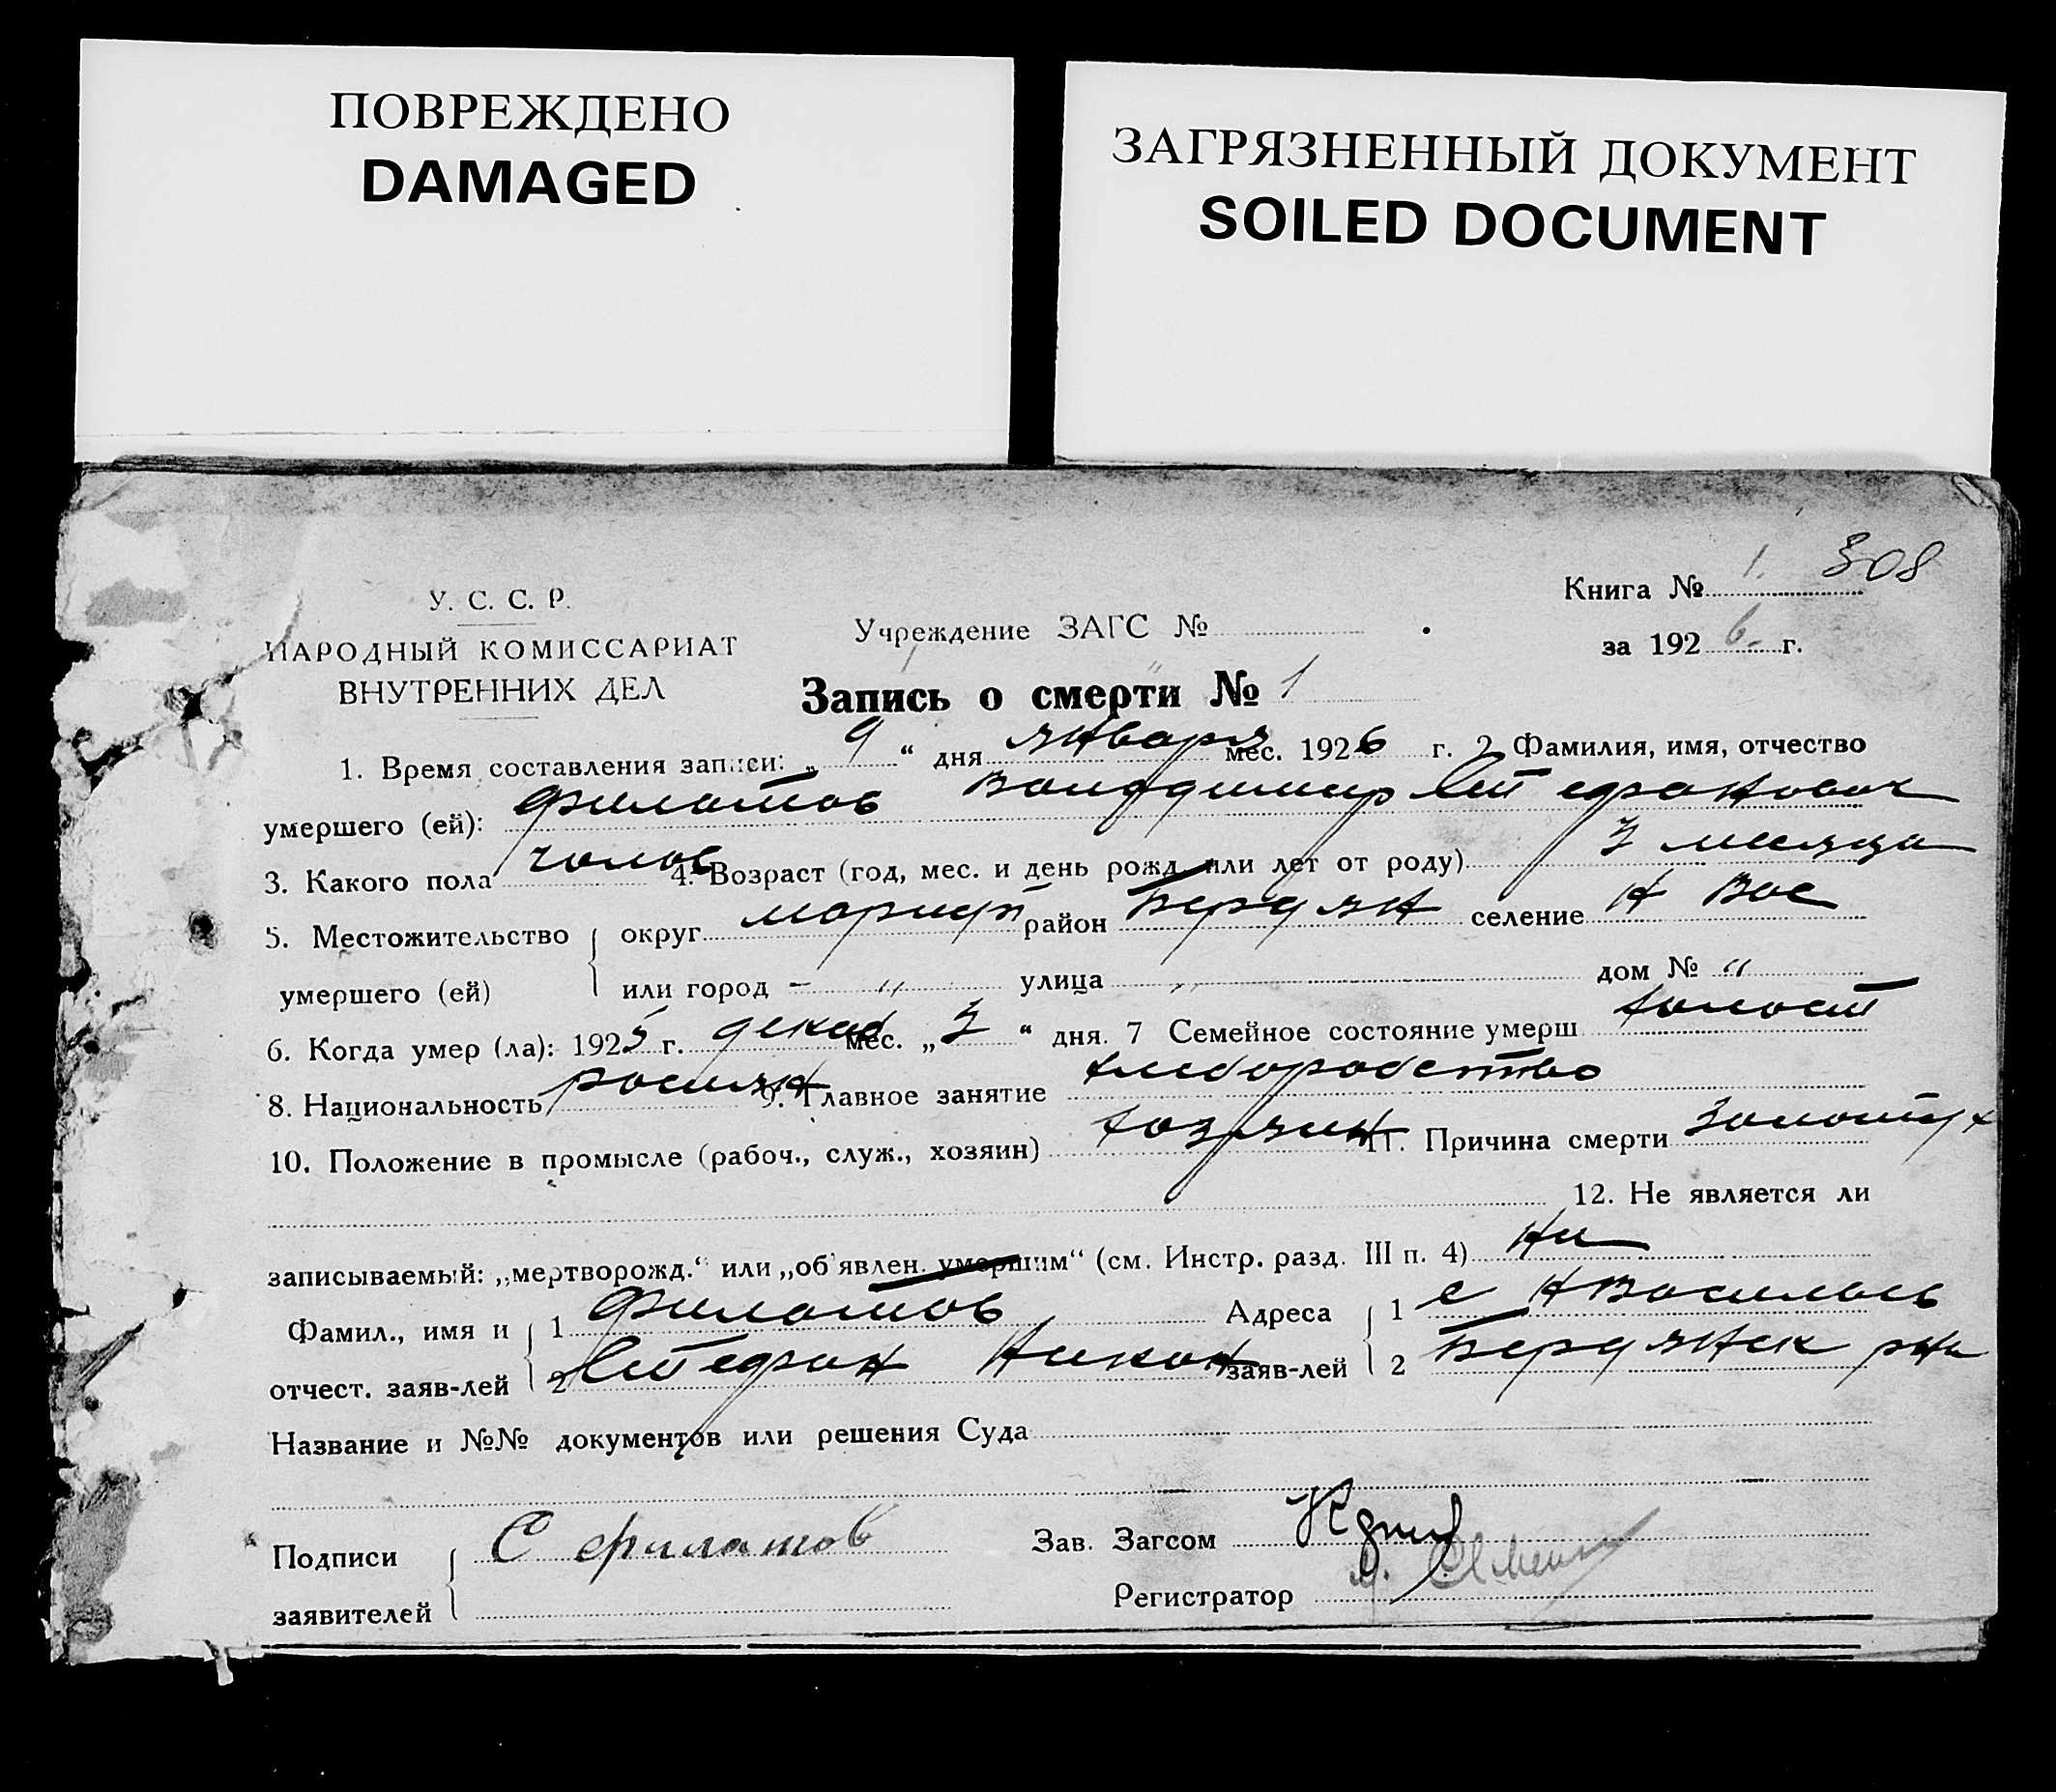 ПОВРЕЖДЕНО
DAMAGED
ЗАГРЯЗНЕННЫЙ ДОКУМЕНТ
SOILED DOCUMENT
Книга № 1. 308
У. С. С. Р.
Учреждение ЗАГС №
за 1926. г.
НАРОДНЫЙ КОМИССАРИАТ
ВНУТРЕННИХ ДЕЛ
Запись о смерти № 1
1. Время составления записи: „9“ дня января мес. 1926 г. 2 Фамилия, имя, отчество
умершего (ей): Филатов Володимир Стефанович
3. Какого пола чолов 4. Возраст (год, мес. и день рожд. или лет от роду) 3 месяца
5. Местожительство округ Мариуп район Бердян селение Н Вас
умершего (ей) или город - " улица " дом № "
6. Когда умер (ла): 1925 г. декаб мес. „3“ дня. 7 Семейное состояние умерш холост
8. Национальность росиян 9. Главное занятие хлеборобство
10. Положение в промысле (рабоч., служ., хозяин) хозяин 11. Причина смерти Золотух
12. Не является ли
записываемый: „мертворожд.“ или „об'явлен. умершим“ (см. Инстр. разд. III п. 4) Ни
Фамил., имя и 1 Филатов Адреса 1 с Н Василев
отчест. заяв-лей 2 Стефан Никон заяв-лей 2 Бердянск рна
Название и №№ документов или решения Суда
Подписи С Филатов Зав. Загсом
заявителей Регистратор